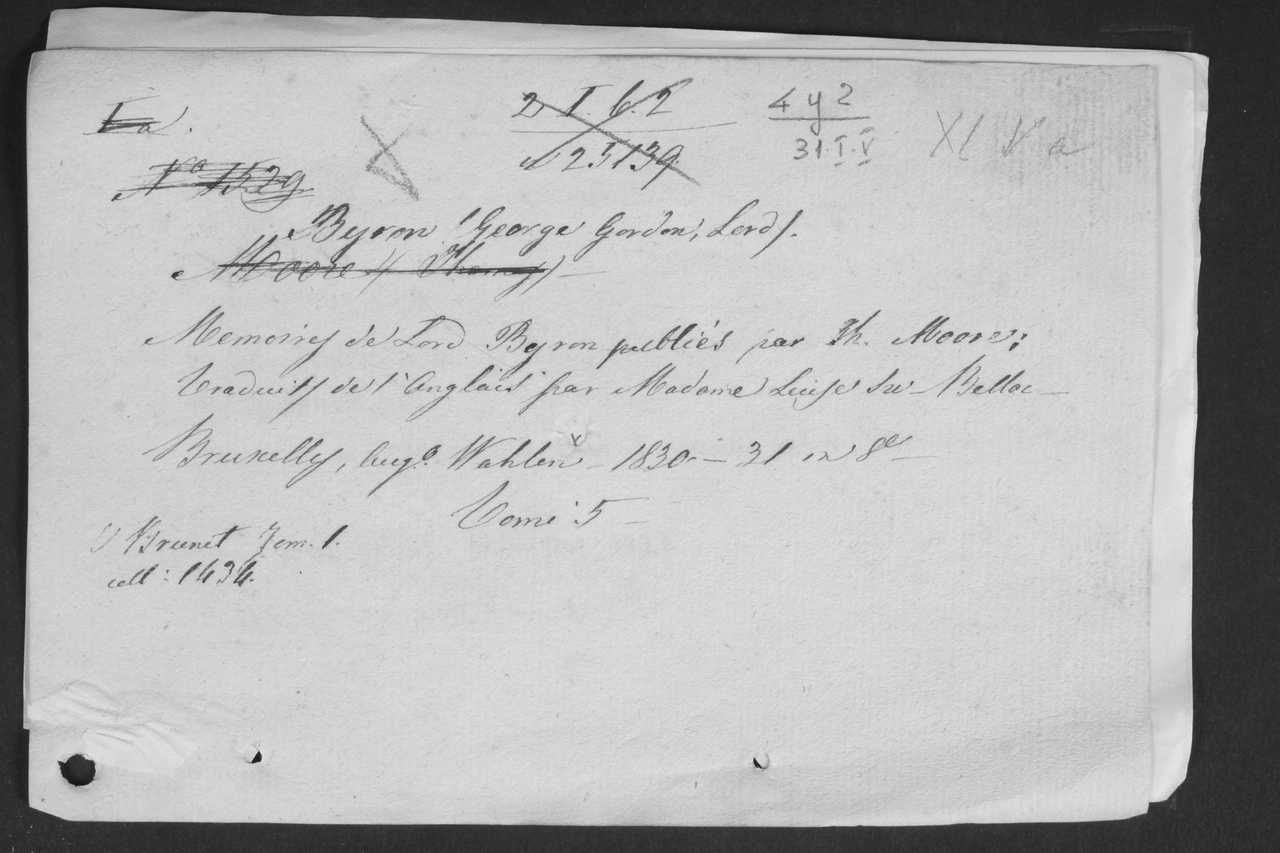 Ea.
2 I. 6. 2
4 y 2
XL V a
N 25139.
31. I. V
Na 1529
Byron (George Gordon, Lord).
Moore (Thomas) —
Memoires de Lord Byron publiés par Th. Moore;
traduits de l'anglais par Madame Luise Sw- Belloc —
Bruxelles, Aug. Wahlen — 1830 — 31 in 8º —
Tome 5 —
Brunet Tom. 1.
coll: 1434.